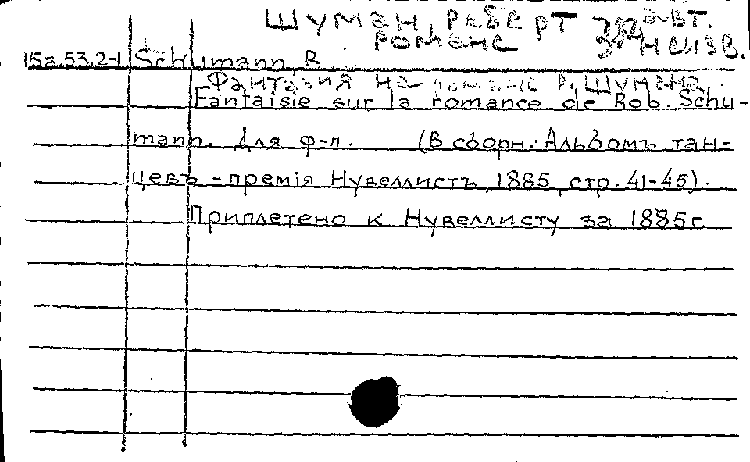 ШУМАН, РЕБЕРТ авт.
РОМАНС НЕИЗВ.
15а.53.2-1 Schumann, R.
Фантазия на романс Р. Шумана.
Fantaisie sur la romance de Rob. Schu-
mann. Для ф-п. (В сборн. Альбомъ тан-
цевъ - премія Нувеллистъ, 1885, стр. 41-45).
Приплетено к Нувеллисту за 1885 г.